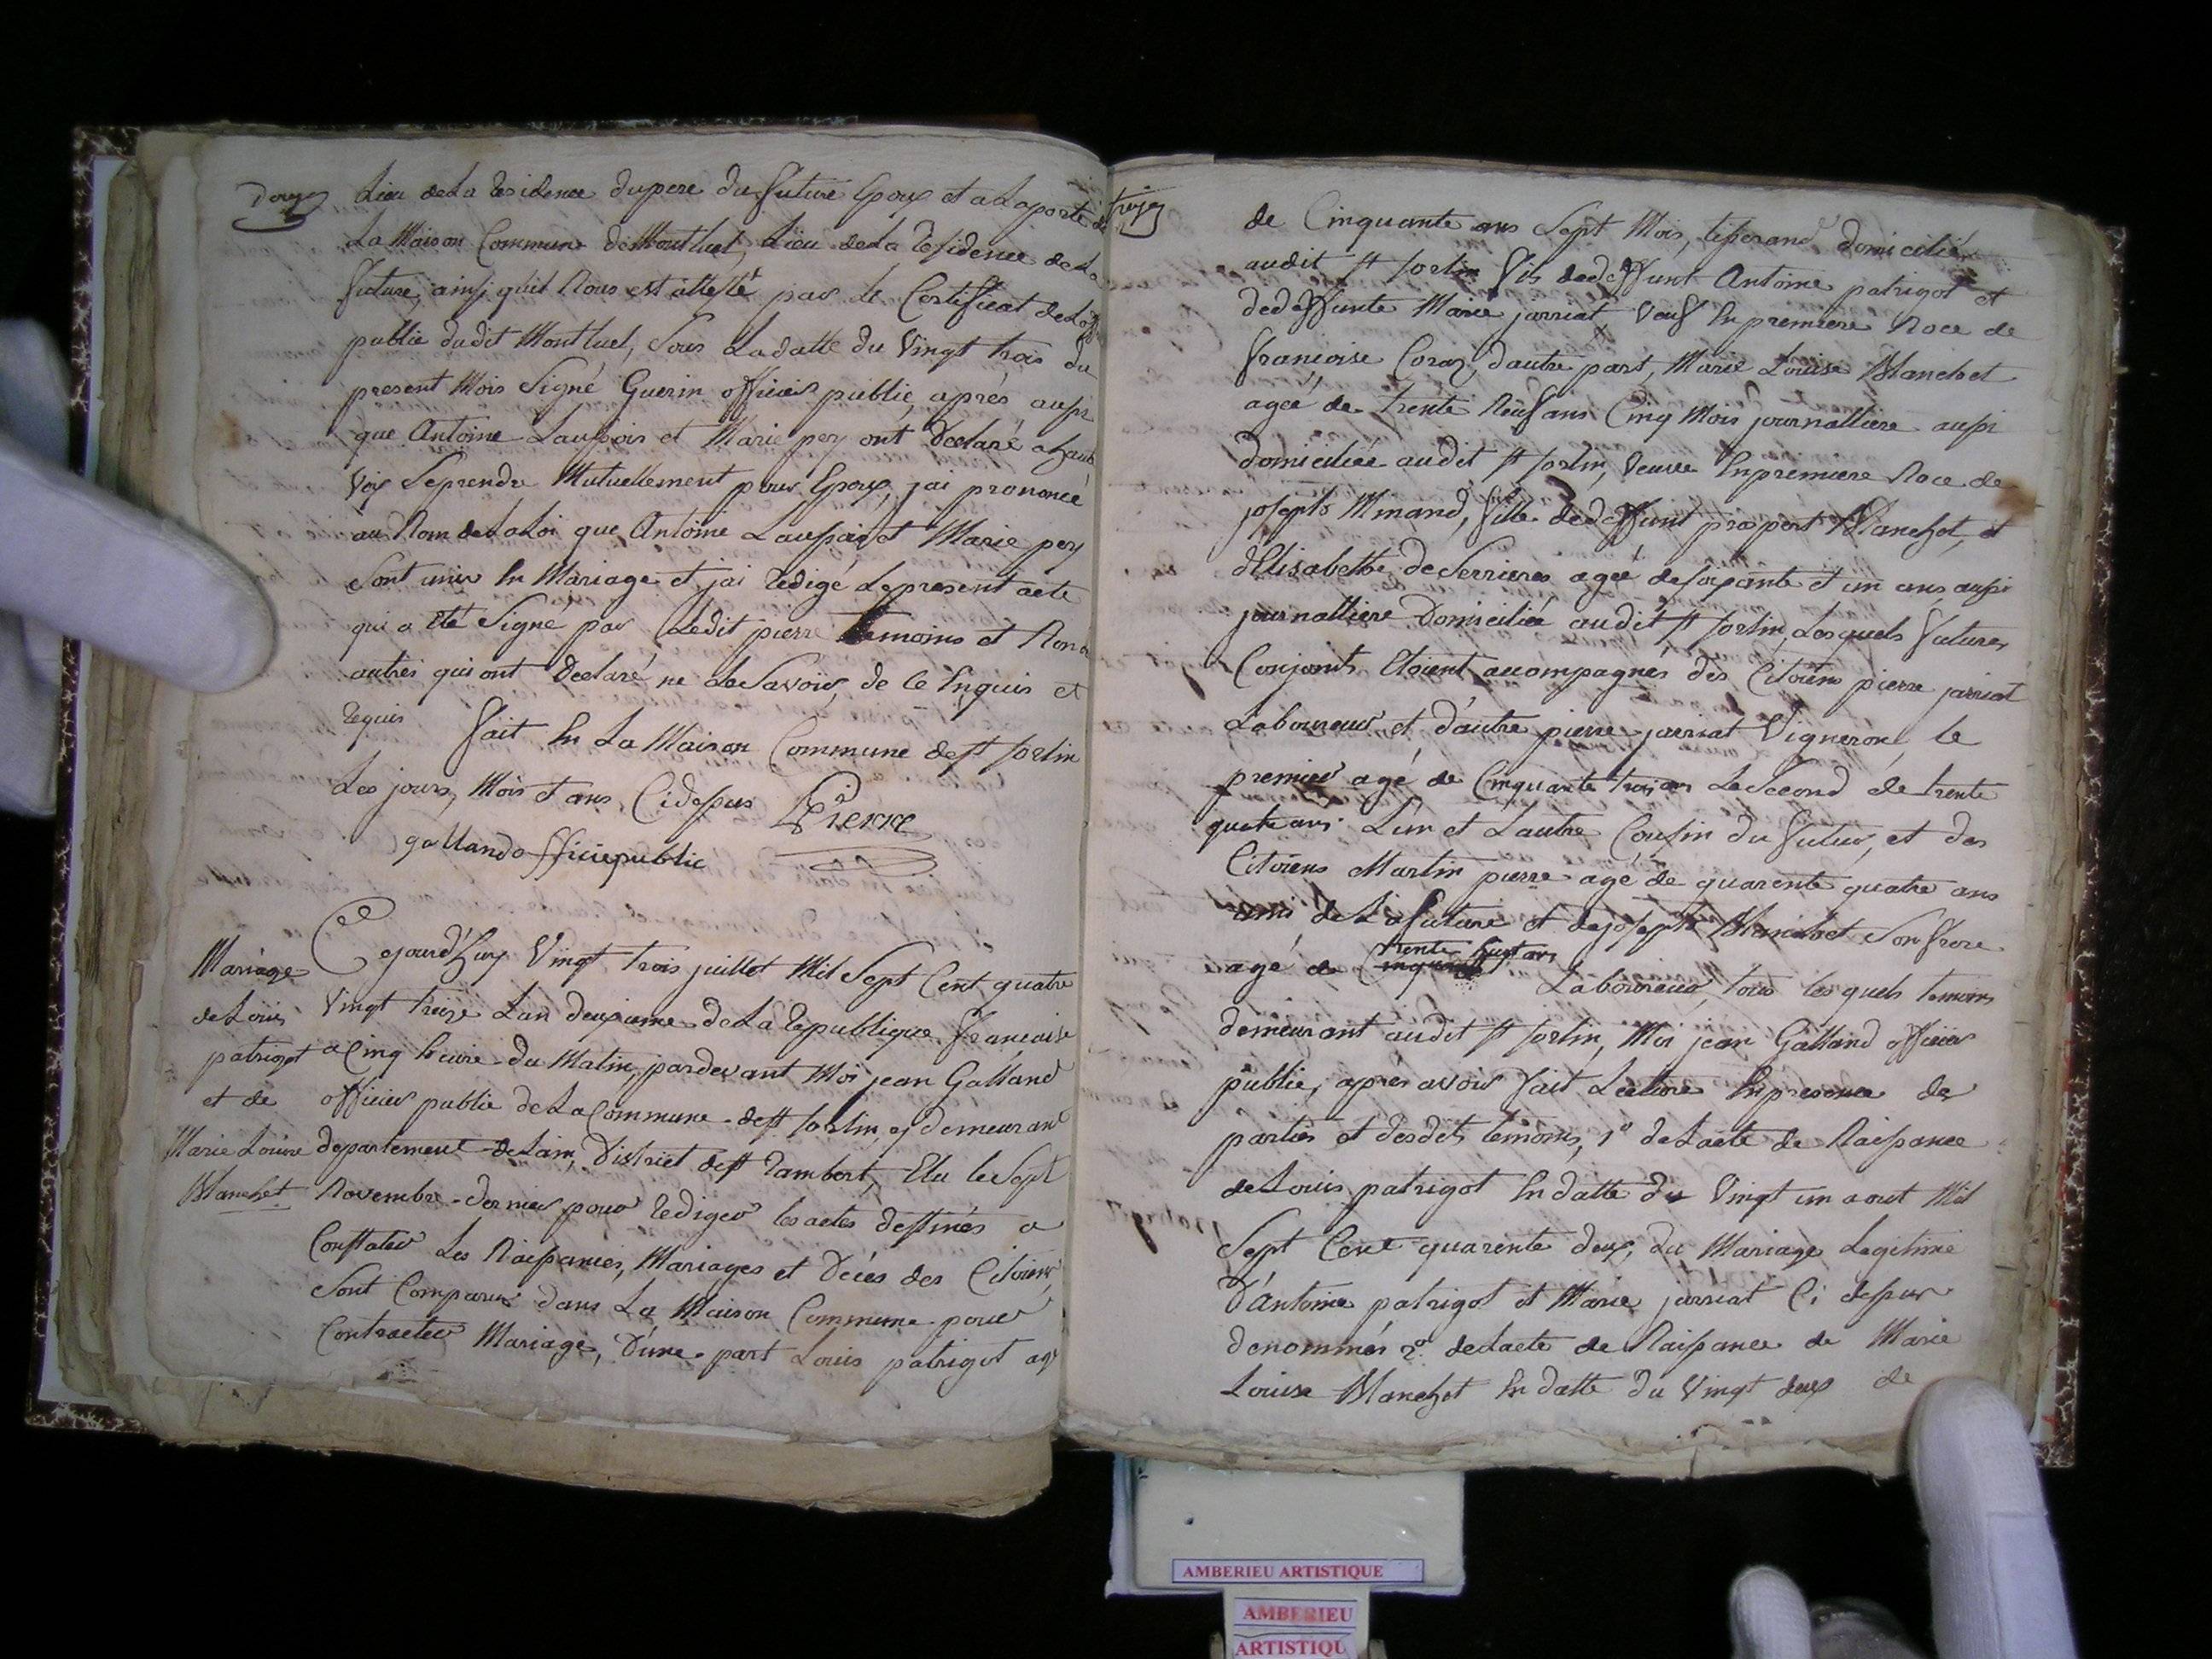 douze
Lieu de La residence du pere du future Epoux et a La porte de
La Maison Commune de Montluel, Lieu de La residence de La
future, ainsi qu'il Nous est attesté par le Certificat de Lof
public dudit Montluel, sous La datte du Vingt trois du
present Mois Signé Guerin officier public, aprés aussi
que Antoine Laussois et Marie pery ont Declaré a haute
Voix Se prendre Mutuellement pour Epoux, jai prononcé
au Nom de La Loi que Antoine Laussois et Marie pery
Sont unis En Mariage et jai redigé Le present acte
qui a été Signé par Ledit pierre temoins et Non
autres qui ont Declaré ne Le Savoir, de Ce Enquis et
requis
fait En La Maison Commune de st sorlin
Les jours, Mois et ans Cidessus LPierre
gallandofficiepublic
Mariage
de Louis
patrigot
et de
Marie Louise
Blanchet
Cejourd'huy Vingt trois juillet Mil Sept Cent quatre
Vingt treize Lan deuxieme de La republique francaise
a Cinq heure du Matin, pardevant Moi jean Galland
officier public de La Commune de st sorlin, y demeurant
departement de Lain, District de st rambert, Elu le Sept
Novembre dernier pour rediger les actes destinés a
Constater Les Naissances, Mariages et Décés des Citoiens,
Sont Comparus dans La Maison Commune pour
Contracter Mariage, D'une part Louis patrigot agé
treize
de Cinquante ans Sept Mois, tisserand domicilié
audit st sorlin fils de deffunt Antoine patrigot et
de deffunte Marie jarriat Veuf En premiere Noce de
françoise Coraz, dautre part, Marie Louise Blanchet
ageé de trente Neuf ans Cinq Mois journalliere aussi
domiciliée audit st sorlin, Veuve En premiere Noce de
joseph Minand, fille de deffunt prospert Blanchet, et
d'Elisabethe de Serrieres ageé de soixante et un ans aussi
journalliere Domiciliée audit st sorlin, Lesquels futures
Conjoints Etoient accompagnés des Citoiens pierre jarriat
Laboureur et d'autre pierre jarriat Vigneron, le
premier agé de Cinquante trois ans Le Second de trente
quatre ans. L'un et Lautre Cousin du futur, et des
Citoiens Martin pierre agé de quarente quatre ans
ami de La future et de joseph Blanchet Son frere
agé de trente huit ans
Laboureur, tous lesquels temoins
demeurant audit st sorlin, Moi jean Galland officier
public, aprés avoir fait Lecture En presence des
parties et desdits temoins, 1º de Lacte de Naissance
de Louis patrigot En datte du Vingt un aout Mil
Sept Cent quarente deux, du Mariage Legitime
D'Antoine patrigot et Marie jarriat Ci dessus
denommés 2º de Lacte de Naissance de Marie
Louise Blanchet En datte du Vingt deux de
AMBERIEU ARTISTIQUE
AMBERIEU
ARTISTIQU